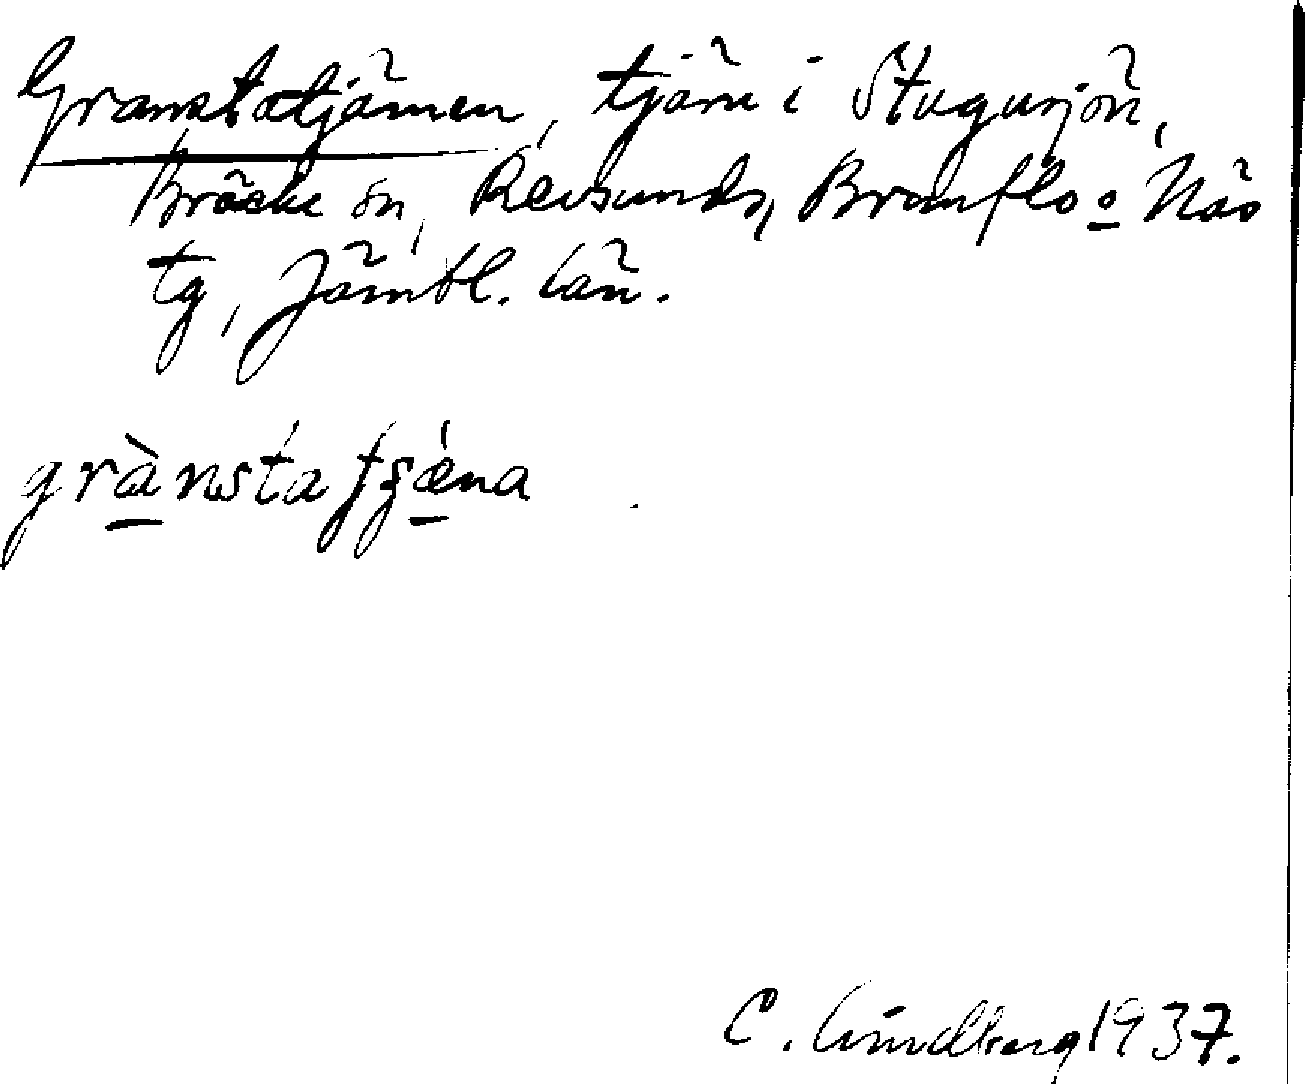 Granstatjärnen, tjärn i Stugusjön,
Bräcke sn, Revsunds, Brunflo o Näs
tg, Jämtl. län.
grànsta tʃǽna
C. Lindberg 1937.